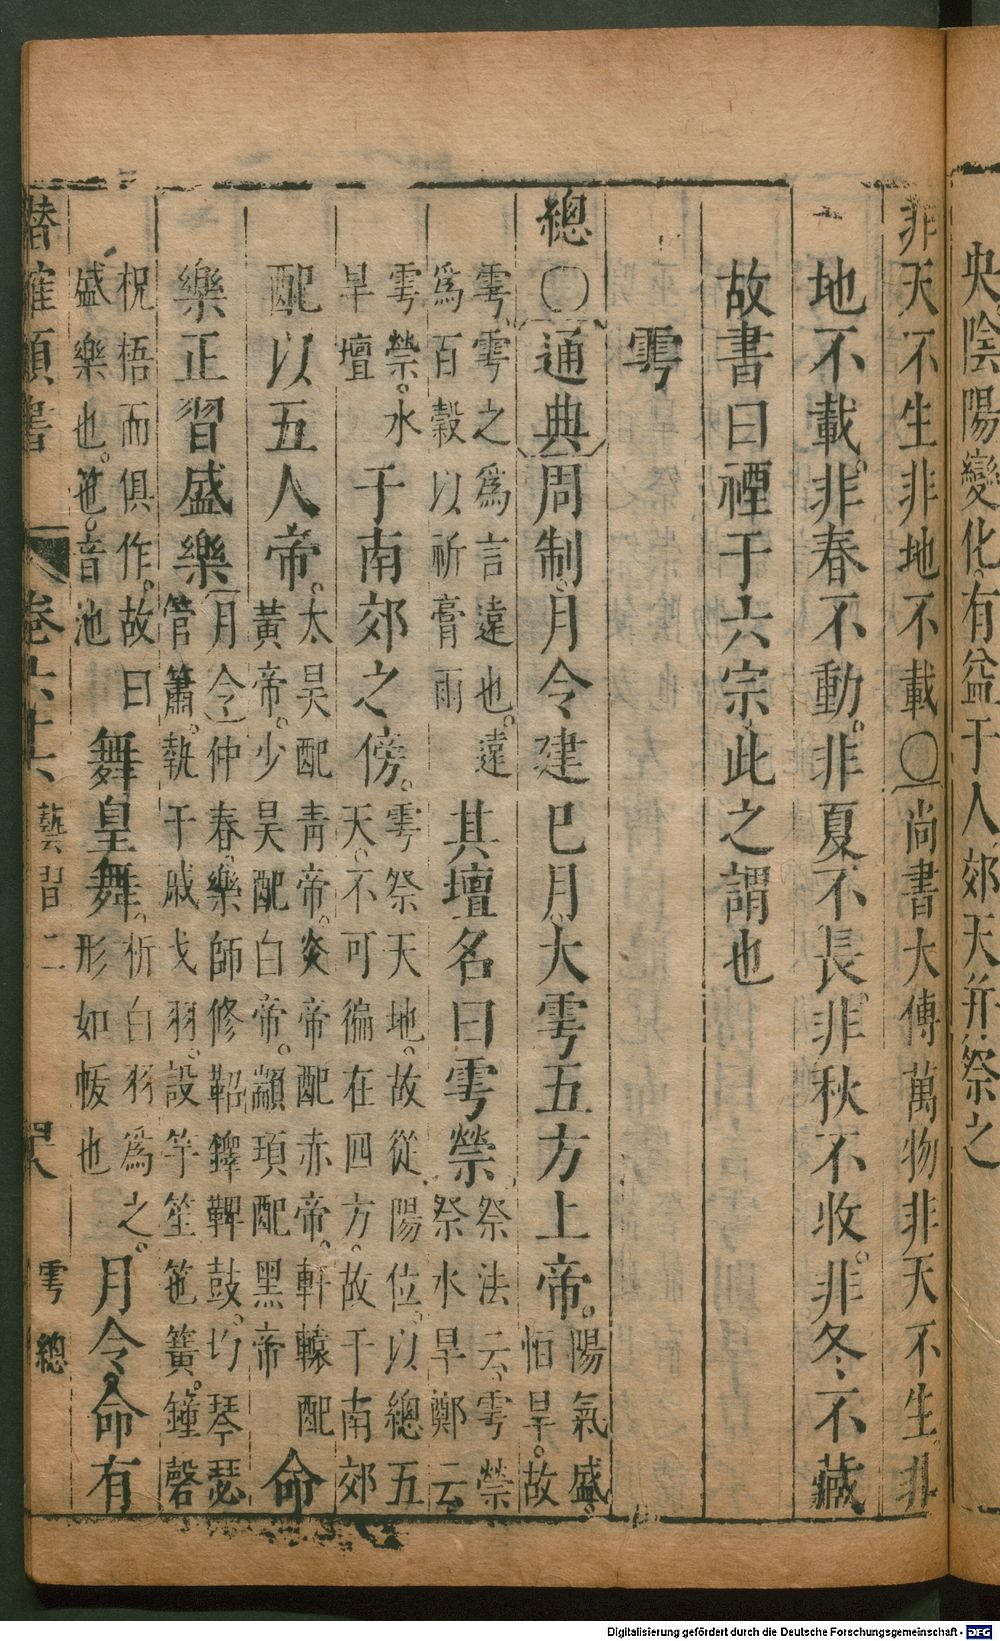 央陰陽變化有益于人郊天并祭之
非天不生非地不載〇尚書大傳萬物非天不生非
地不載非春不動非夏不長非秋不收非冬不藏
故書曰禋于六宗此之謂也
雩
總〇通典周制月令建巳月大雩五方上帝陽氣盛
恒旱故
雩雩之爲言遠也遠
爲百穀以祈膏雨
其壇名曰雩禜祭法云雩禜
祭水旱鄭云
雩禜水
旱壇
于南郊之傍雩祭天地故從陽位以總五
天不可徧在四方故于南郊
配以五人帝太昊配青帝炎帝配赤帝軒轅配
黃帝少昊配白帝顓頊配黑帝
命
樂正習盛樂月令仲春樂師修鞀鞞鼓均琴瑟
管簫執干戚戈羽設竽笙竾簧鐘磬
柷梧而俱作故曰
盛樂也竾音池
舞皇舞析白羽爲之
形如帗也
月令命有
卷六十六
藝習二
四八
雩
總
Digitalisierung gefördert durch die Deutsche Forschungsgemeinschaft - DFG